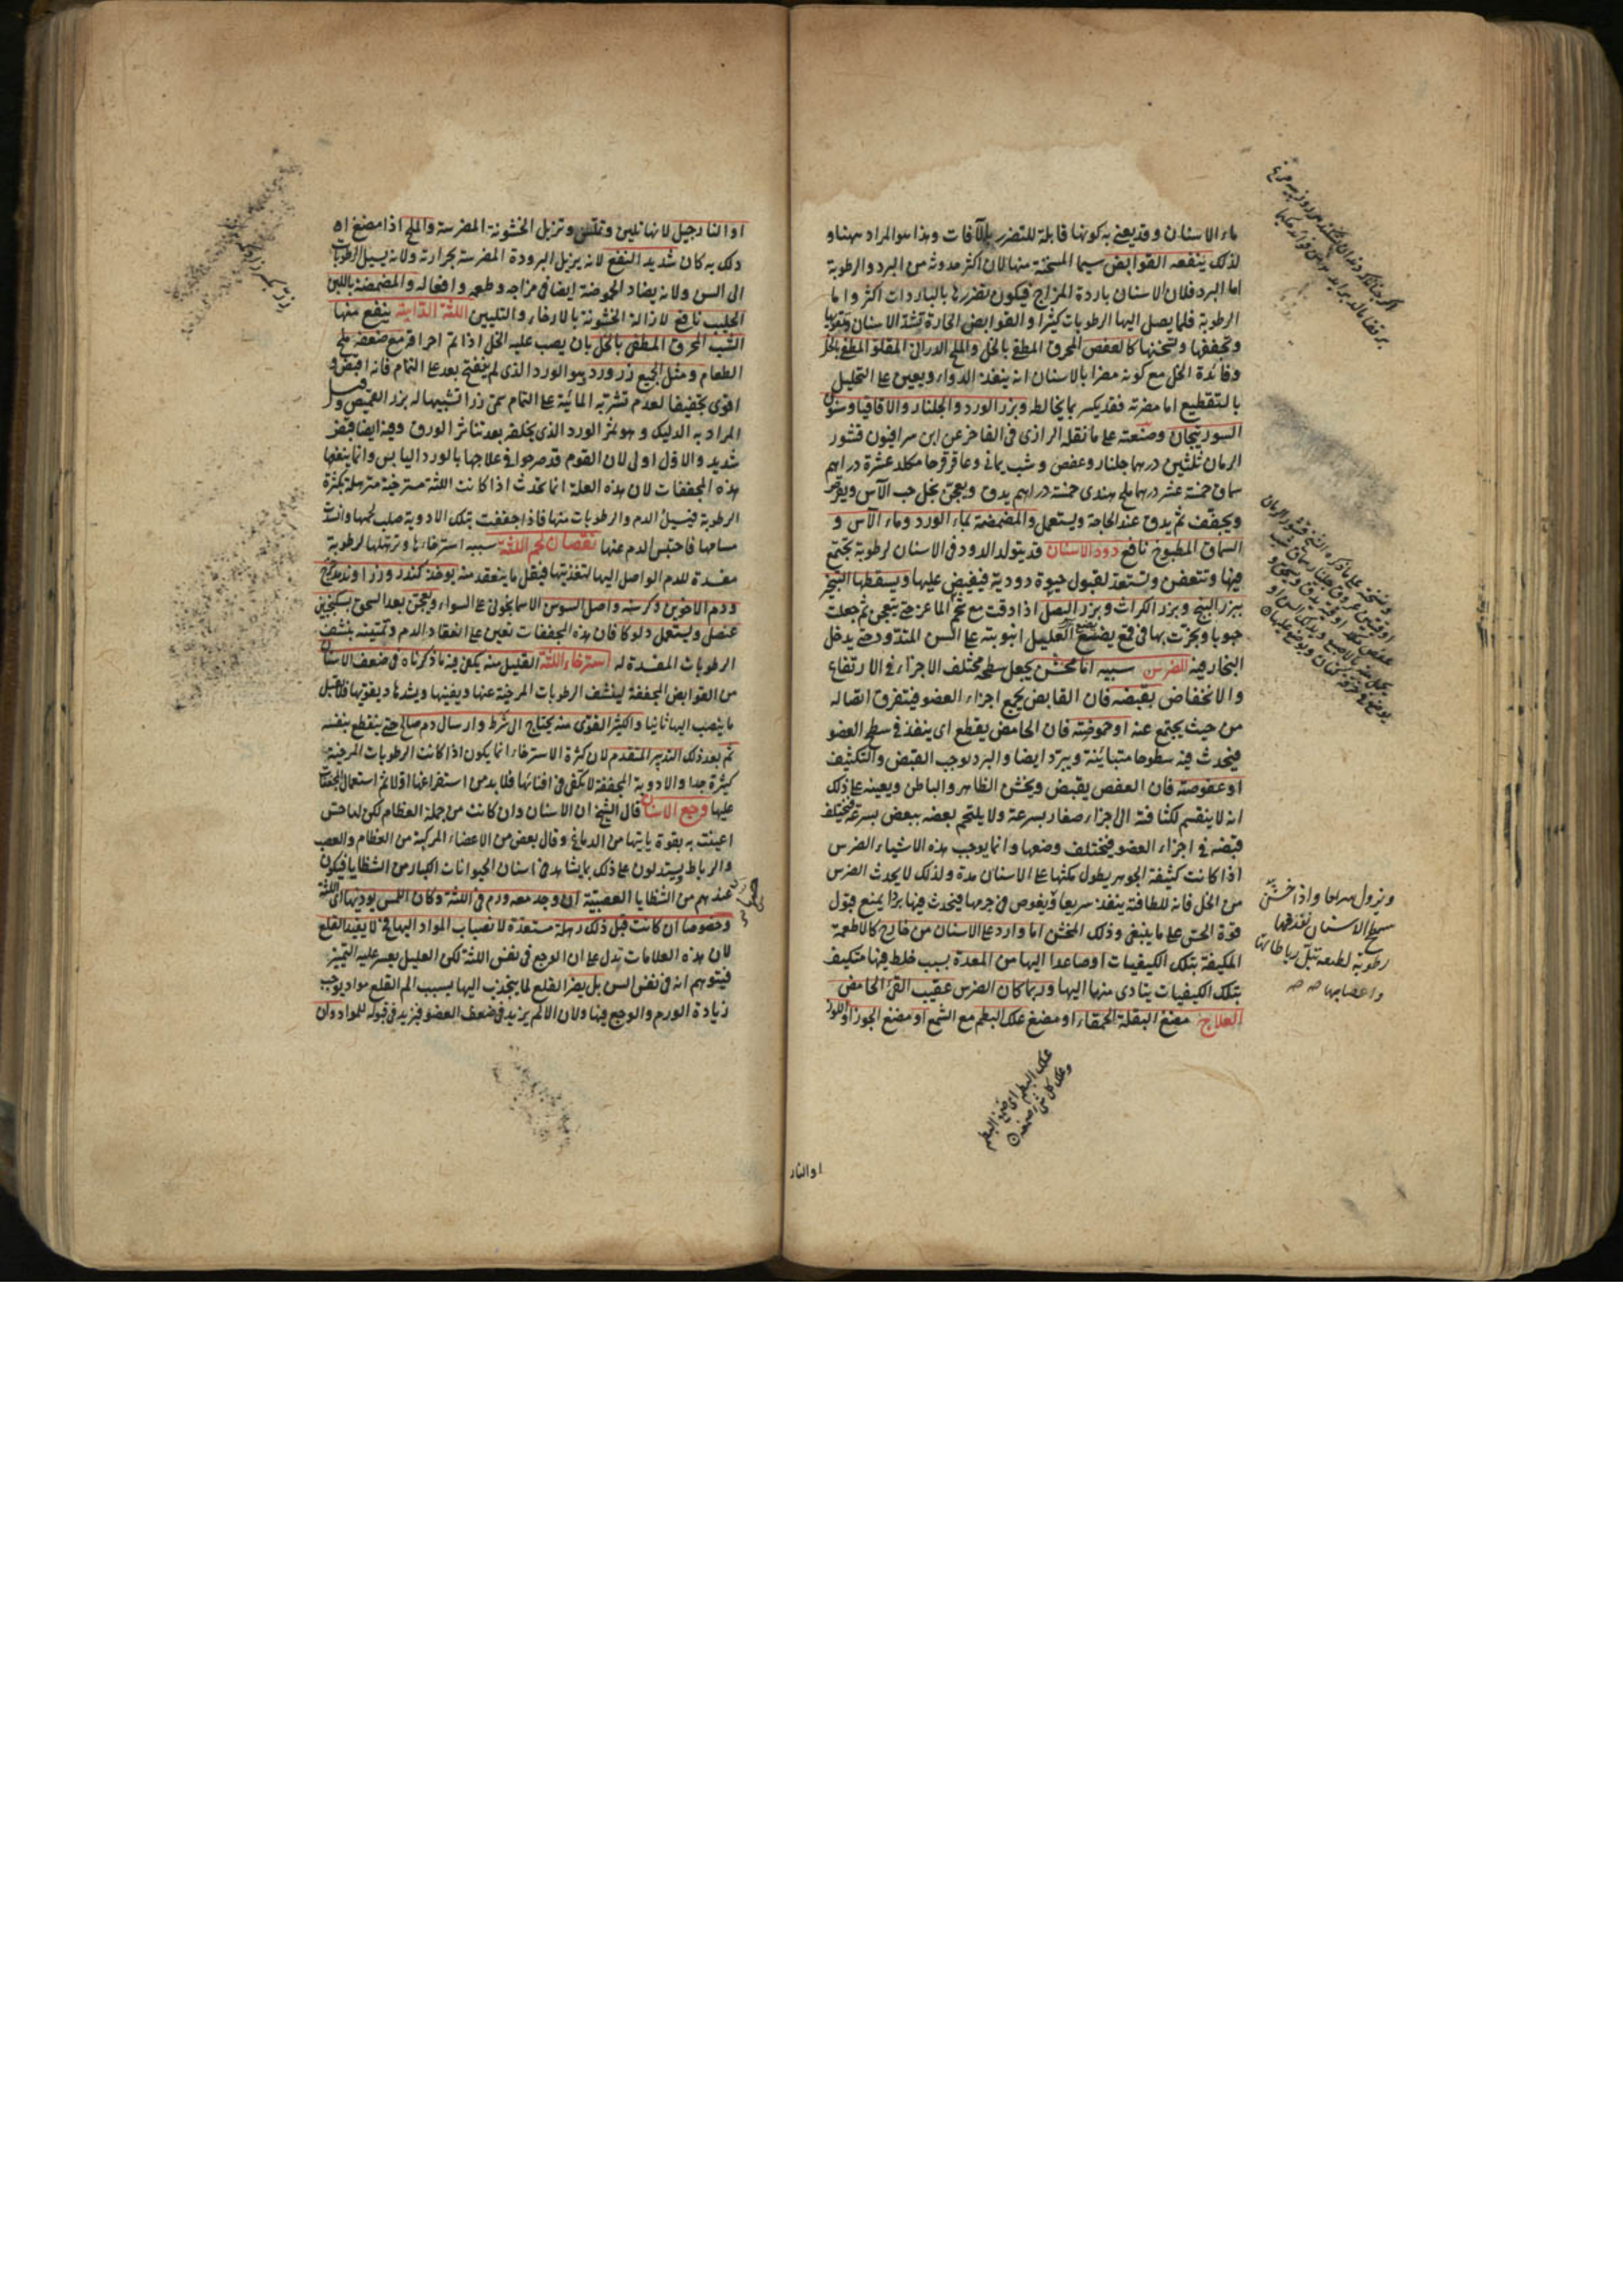 ماء الاسنان وقد يعنى به كونها قابلة للتضرر بالآفات وهذا هو المراد ههنا و
لذلك ينفعه القوابض سيما المسخنة منها لان اكثر حدوثه من البرد والرطوبة
اما البرد فلان الاسنان باردة المزاج فيكون تضررها بالباردات اكثر واما
الرطوبة فلما يصل اليها الرطوبات كثيرا والقوابض الحارة تشد الاسنان وتقويها
وتجففها وتسخنها كالعفص المحرق المطفى بالخل والملح الدرانى المقلو المطفى بالخل
وفائدة الخل مع كونه مضرا بالاسنان انه ينفذ الدواء ويعين على التحليل
بالتقطيع اما مضرته فقد يكسر بما يخالطه وبزر الورد والجلنار والاقاقيا وسنون
السورنجان وصنعته على ما نقله الرازى فى الفاخر عن ابن سرافيون قشور
الرمان ثلثين درهما جلنار وعفص وشب يمانى وعاقرقرحا مكلد عشرة دراهم
سماق خمسة عشر درهما ملح هندى خمسة دراهم يدق ويعجن بخل حب الآس ويقرص
ويجفف ثم يدق عند الحاجة ويستعمل والمضمضة بماء الورد وماء الآس و
السماق المطبوخ نافع دود الاسنان قد يتولد الدود فى الاسنان لرطوبة تجتمع
فيها وتتعفن وتستعد لقبول حيوة دودية فيفيض عليها ويسقطها التبخير
ببزر البنج وبزر الكراث وبزر البصل اذا دقت مع شحم الماعز حتى تتعجن ثم جعلت
حبوبا وبخرت بها فى قمع يضع العليل انبوبته على السن المتدود حتى يدخل
البخار فيه للضرس سببه اما مخشن يجعل سطحه مختلف الاجزاء فى الارتفاع
والانخفاض بقبضه فان القابض يجمع اجزاء العضو فيتفرق اتصاله
من حيث يجتمع عنه او حموضته فان الحامض يقطع اى ينفذ فى سطح العضو
فيحدث فيه سطوحا متباينة ويبرد ايضا والبرد يوجب القبض والتكثيف
او عفوصته فان العفص يقبض ويخشن الظاهر والباطن ويعينه على ذلك
انه لا ينقسم لكثافته الى اجزاء صغار بسرعة ولا يلتحم بعضه ببعض بسرعة فيختلف
قبضه فى اجزاء العضو فيختلف وضعها وانما يوجب هذه الاشياء الضرس
اذا كانت كثيفة الجوهر يطول مكثها على الاسنان مدة ولذلك لا يحدث الضرس
من الخل فانه للطافته ينفذ سريعا ويغوص فى جرمها فيحدث فيها بردا يمنع قبول
قوة الحس على ما ينبغى وذلك المخشن اما وارد على الاسنان من خارج كالاطعمة
المكيفة بتلك الكيفيات او صاعدا اليها من المعدة بسبب خلط فيها متكيف
بتلك الكيفيات يتادى منها اليها ولهذا كان الضرس عقيب القئ الحامض
العلاج مضغ البقلة الحمقاء او مضغ علك البطم مع الشمع او مضغ الجوز او اللوز
ويزول سريعا واذا خشن
سطح الاسنان نفذ فيها
رطوبة لطيفة تبل رباطاتها
واعصابها صح صح
علك البطم اى صمغ البطم
وعلك كل شئ صمغه
او النار
او النارجيل لانها تلين وتملس وتزيل الخشونة المضرسة والملح اذا مضغ او
دلك به كان شديد النفع لانه يزيل البرودة المضرسة بحرارته ولانه يسيل الرطوبات
الى السن ولانه يضاد الحموضة ايضا فى مزاجه وطعمه وافعاله والمضمضة باللبن
الحليب نافع لازالة الخشونة بالارخاء والتليين اللثة الدامية ينفع منها
الشب المحرق المطفى بالخل بان يصب عليه الخل اذا تم احراقه مع ضعفه ملح
الطعام ومثل الجميع زر ورد وهو الورد الذى لم ينفتح بعد على التمام فانه اقبض و
اقوى تجفيفا لعدم تشربه المائية على التمام سمى زرا تشبيها له بزر القميص وقيل
المراد به الدليك وهو ثمر الورد الذى يخلفه بعد تناثر الورق وفيه ايضا قبض
شديد والاول اولى لان القوم قد صرحوا فى علاجها بالورد اليابس وانما ينفعها
هذه المجففات لان هذه العلة انما تحدث اذا كانت اللثة مسترخية مترهلة بكثرة
الرطوبة فيسيل الدم والرطوبات منها فاذا جففت بتلك الادوية صلب لحمها وانسد
مسامها فاحتبس الدم عنها نقصان لحم اللثة سببه استرخاءها وترهلها لرطوبة
مفسدة للدم الواصل اليها لتغذيتها فيقل ما ينعقد منه يوخذ كندر وزراوند مدحرج
ودم الاخوين وكرسنة واصل السوس الاسمانجونى على السواء ويعجن بعد السحق بسكنجبين
عنصل ويستعمل دلوكا فان هذه المجففات تعين على انعقاد الدم وتمتينه بنشف
الرطوبات المفسدة له استرخاء اللثة القليل منه يكفى فيه ما ذكرناه فى ضعف الاسنان
من القوابض المجففة لينشف الرطوبات المرخية عنها ويفنيها ويشدها ويقويها فلا تقبل
ما ينصب اليها ثانيا والكثير القوى منه يحتاج الى شرط وارسال دم صالح حتى ينقطع بنفسه
ثم بعد ذلك التدبير المتقدم لان كثرة الاسترخاء انما يكون اذا كانت الرطوبات المرخية
كثيرة جدا والادوية المجففة لا يكفى فى افنائها فلا بد من استفراغها اولا ثم استعمال المجففات
عليها وجع الاسنان قال الشيخ ان الاسنان وان كانت من جملة العظام لكن لها حس
اعينت به بقوة ياتيها من الدماغ وقال بعض من الاعضاء المركبة من العظام والعصب
والرباط يستدلون على ذلك بما يشاهد فى اسنان الحيوانات الكبار من الشظايا فيكون
عندهم من الشظايا العصبية ان وجد معه ورم فى اللثة وكان اللمس يوذيها اى اللثة
وخصوصا ان كانت قبل ذلك رهلة مستعدة لانصباب المواد اليها فح لا يفيد القلع
لان هذه العلامات تدل على ان الوجع فى نفس اللثة لكن العليل يعسر عليه التمييز
فيتوهم انه فى نفس السن بل يضر القلع لما ينجذب اليها بسبب الم القلع مواد يوجب
زيادة الورم والوجع فيها ولان الالم يزيد فى ضعف العضو فيزيد فى قبوله للمواد وان